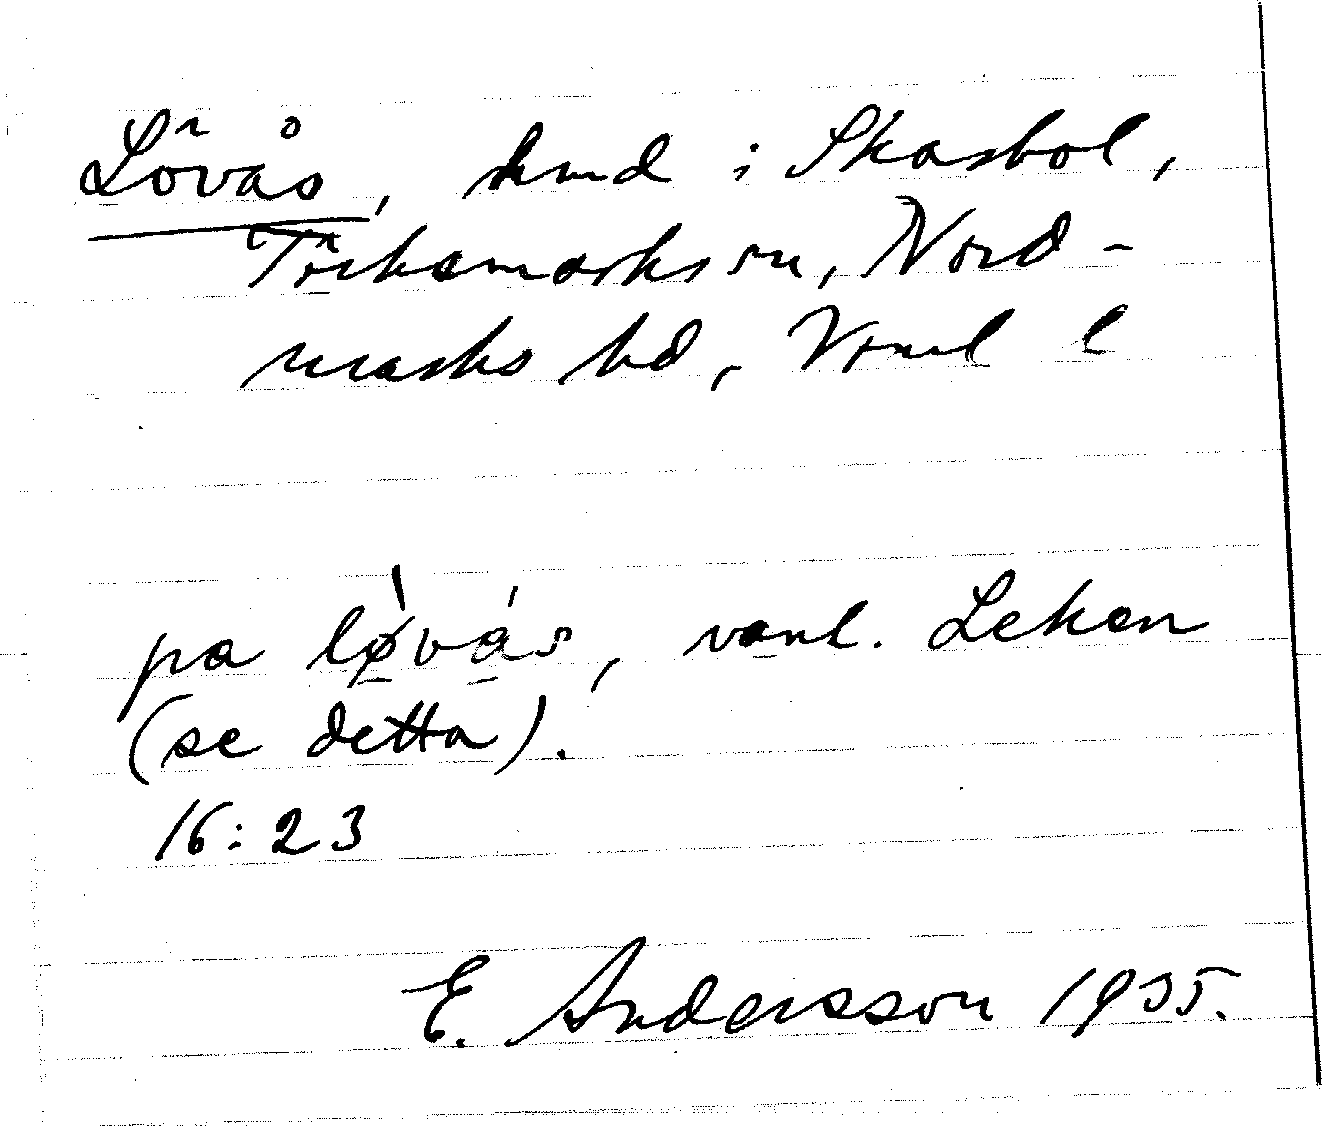 Lövås, hmd i Skasbol,
Töcksmarks sn, Nord-
marks hd, Vrml l
på lø̀vás, vanl. Lekan
(se detta).
16:23
E. Andersson 1935.